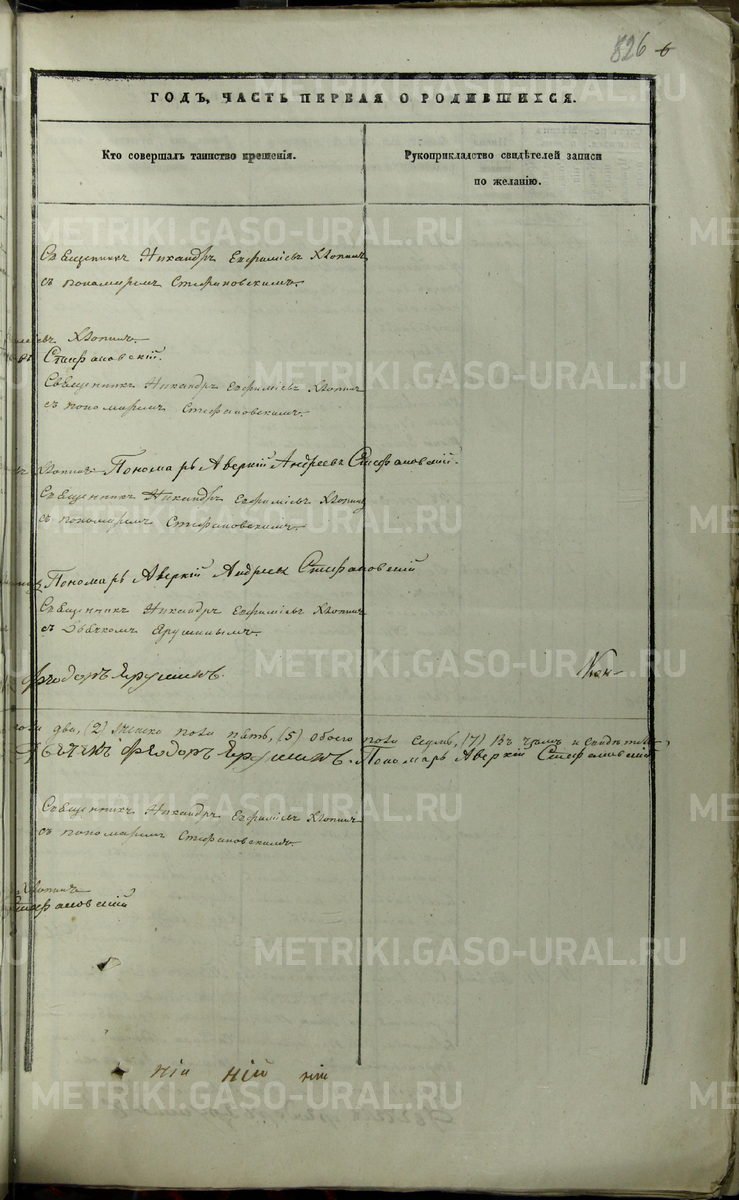 826
ГОДЪ, ЧАСТЬ ПЕРВАЯ О РОДИВШИХСЯ.
Кто совершалъ таинство крещенія.
Рукоприкладство свидѣтелей записи
по желанію.
Священникъ Никандръ Евфиміевъ Хлопинъ
съ пономаремъ Стефановскимъ.
Хлопинъ.
Стефановскій.
Священникъ Никандръ Евфиміевъ Хлопинъ
съ пономаремъ Стефановскимъ.
Хлопинъ Пономарь Аверкій Андреевъ Стефановскій.
Священникъ Никандръ Евфиміевъ Хлопинъ
съ пономаремъ Стефановскимъ.
Пономарь Аверкій Андреевъ Стефановскій
Священникъ Никандръ Евфиміевъ Хлопинъ
съ Дьячкомъ Ярушинымъ.
Феодоръ Ярушинъ.
пола два, (2) женска пола пять, (5) обоего пола седмь, (7) Въ чемъ и свидѣтель
Дьячекъ Феодоръ Ярушинъ. Пономарь Аверкій Стефановскій
Священникъ Никандръ Евфиміевъ Хлопинъ
съ пономаремъ Стефановскимъ.
Хлопинъ
Стефановскій
ній ній
METRIKI.GASO-URAL.RU